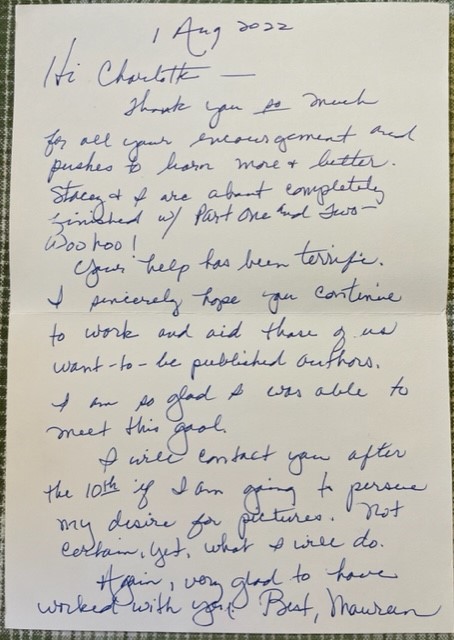 1 Aug 2022
Hi Charlotte —
Thank you so much
for all your encouragement and
pushes to learn more & better.
Stacey & I are about completely
finished w/ Part One and Two-
Woohoo!
Your help has been terrific.
I sincerely hope you continue
to work and aid those of us
want-to-be published authors.
I am so glad I was able to
meet this goal.
I will contact you after
the 10th if I am going to persue
my desire for pictures. Not
certain, yet, what I will do.
Again, very glad to have
worked with you. Best, Maureen